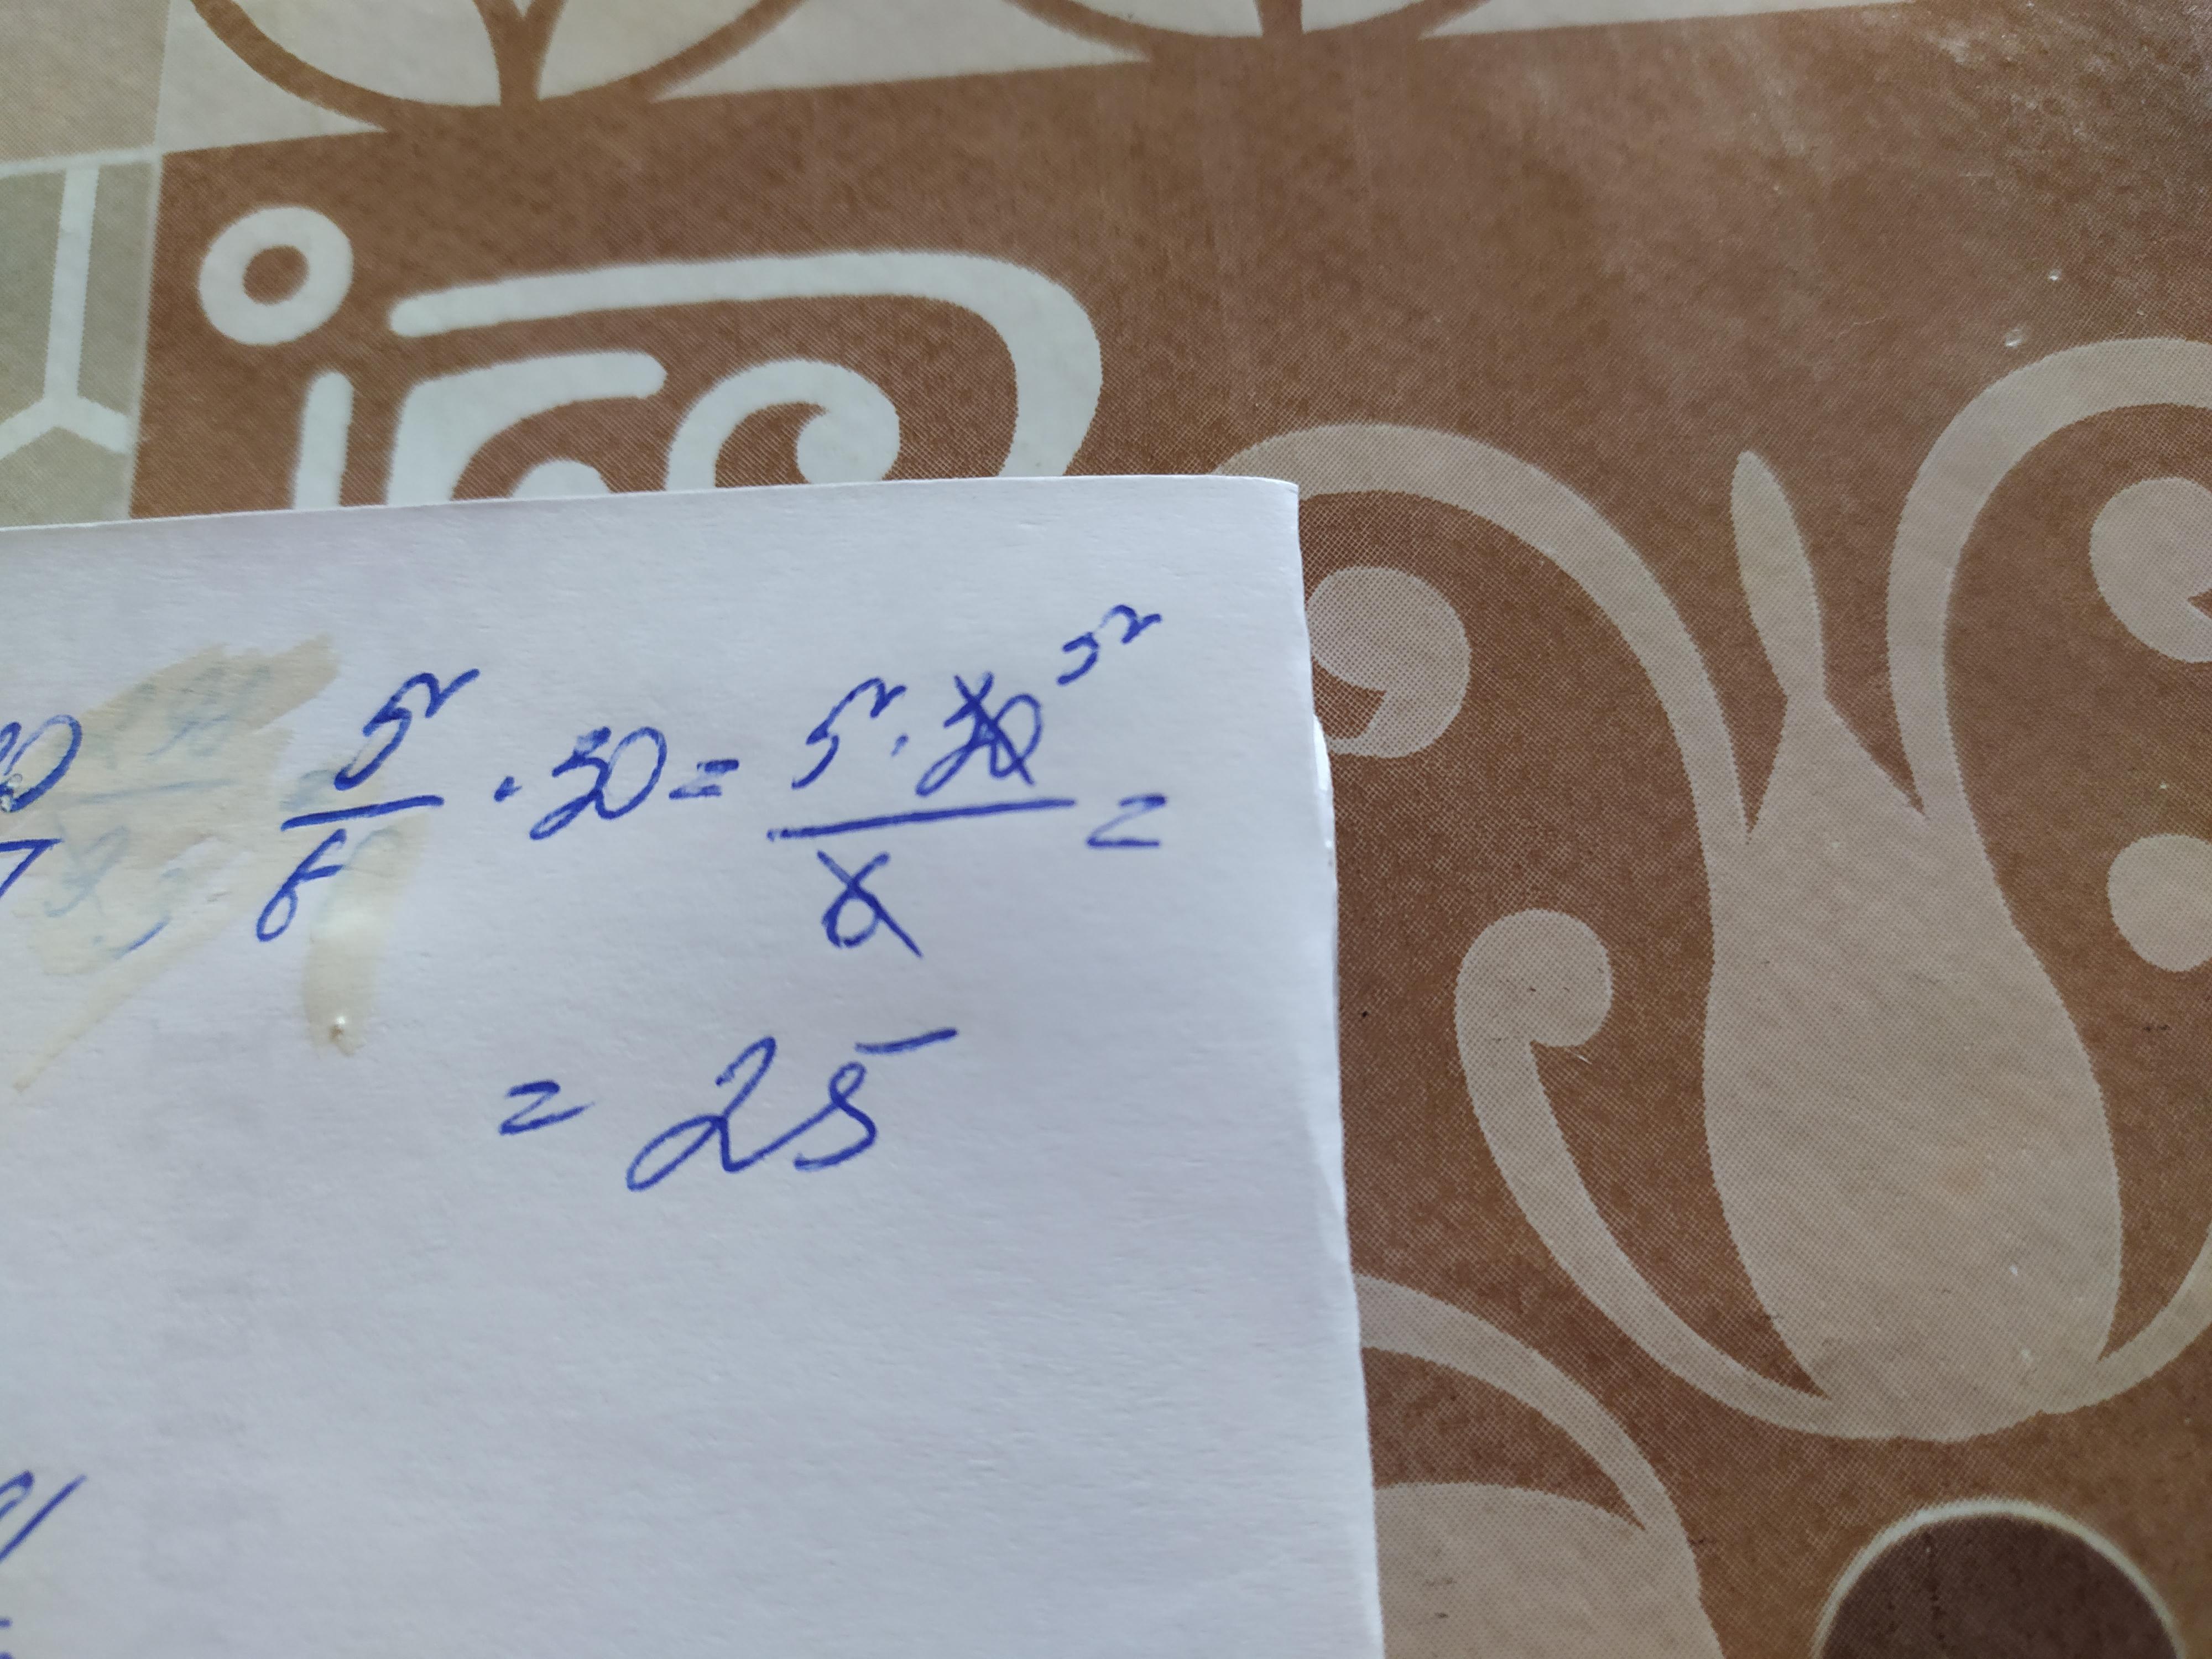 5/6 · 30 = 5 · 30 5/6 =
= 25